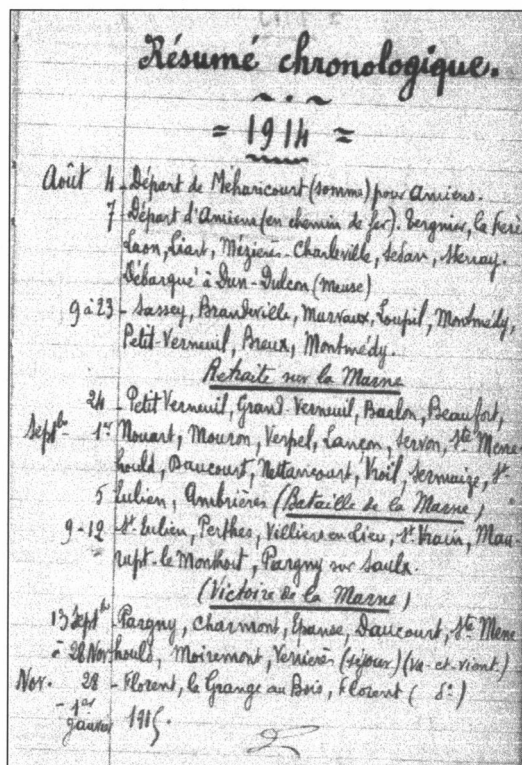 Résumé chronologique.
= 1914 =
Août 4 - Départ de Méharicourt (Somme) pour Amiens.
7 - Départ d'Amiens (en chemin de fer). Tergnier, la Fère
Laon, Liart, Mézières-Charleville, Sedan, Stenay.
Débarqué à Dun-Doulcon (Meuse)
9 à 23 - Sassey, Brandeville, Murvaux, Loupil, Montmédy,
Petit-Verneuil, Breux, Montmédy.
Retraite sur la Marne
24 - Petit Verneuil, Grand-Verneuil, Baalon, Beaufort,
Septbre - 1er Nouart, Mouron, Verpel, Lançon, Servon, Ste Mene-
hould, Daucourt, Nettancourt, Vroil, Sermaize, St-
5 Eulien, Ambrières (Bataille de la Marne)
9-12 - St-Eulien, Perthes, Villiers en Lieu, St Vrain, Mau-
rupt-le Monthoit, Pargny sur Saulx.
(Victoire de la Marne)
13 Septbre - Pargny, Charmont, Epense, Daucourt, Ste Mene
à 28 Nov hould, Moiremont, Verrières (séjour) (va-et-vient)
Nov. 28 - Florent, la Grange au Bois, Florent ( do )
- 1er
Janvier 1915.